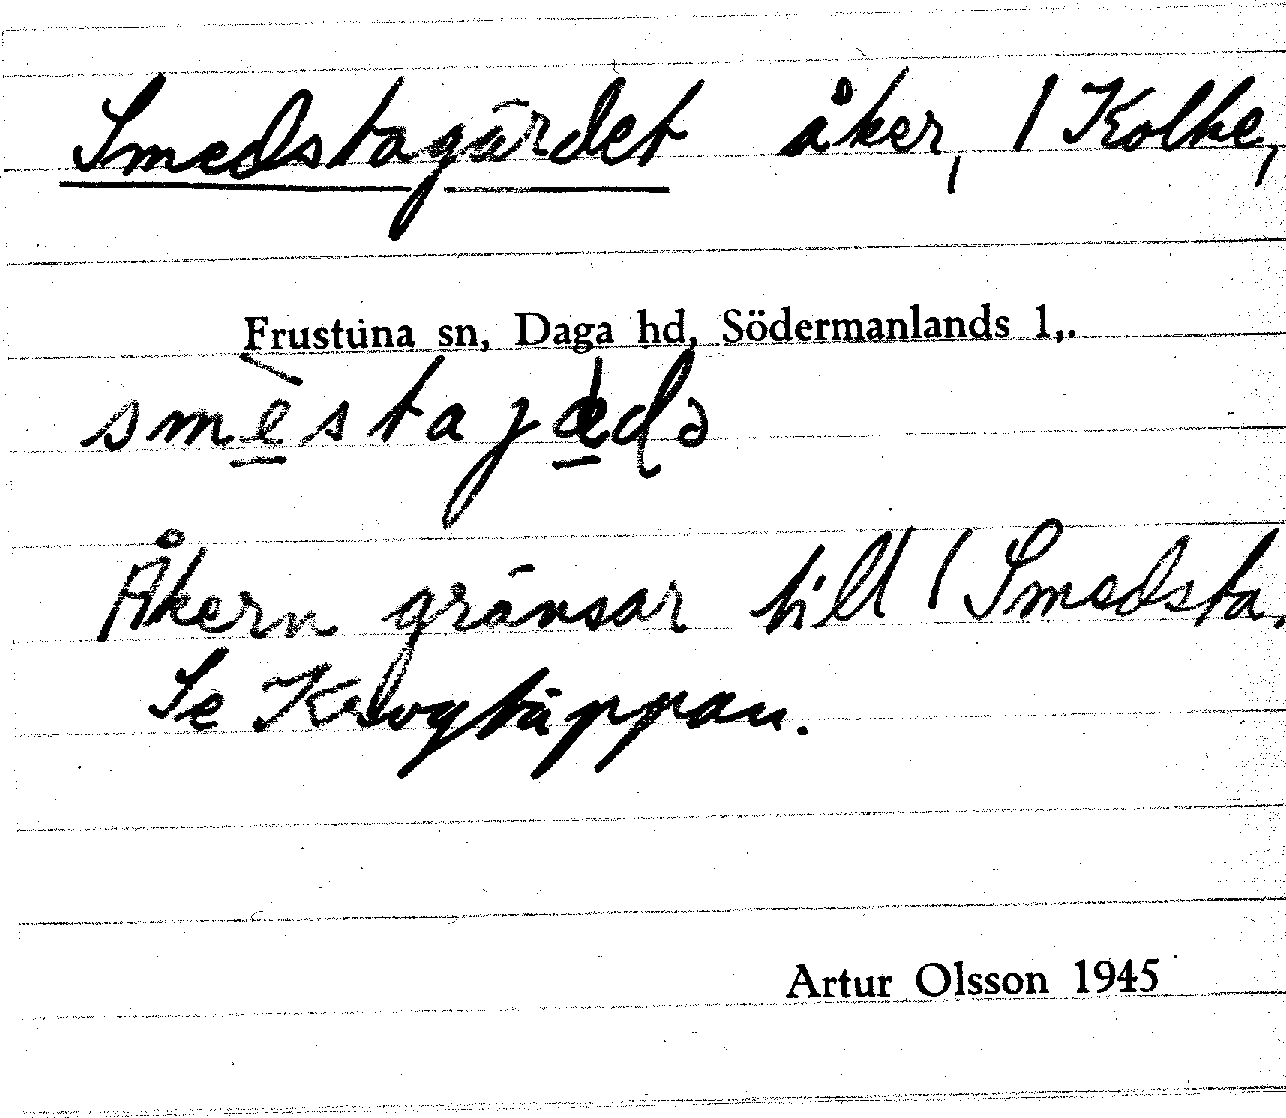 Smedstagärdet åker, / Kolke,
Frustuna sn, Daga hd, Södermanlands l,.
smèstajædə
Åkern gränsar till / Smedsta.
Se Krogtäppan.
Artur Olsson 1945